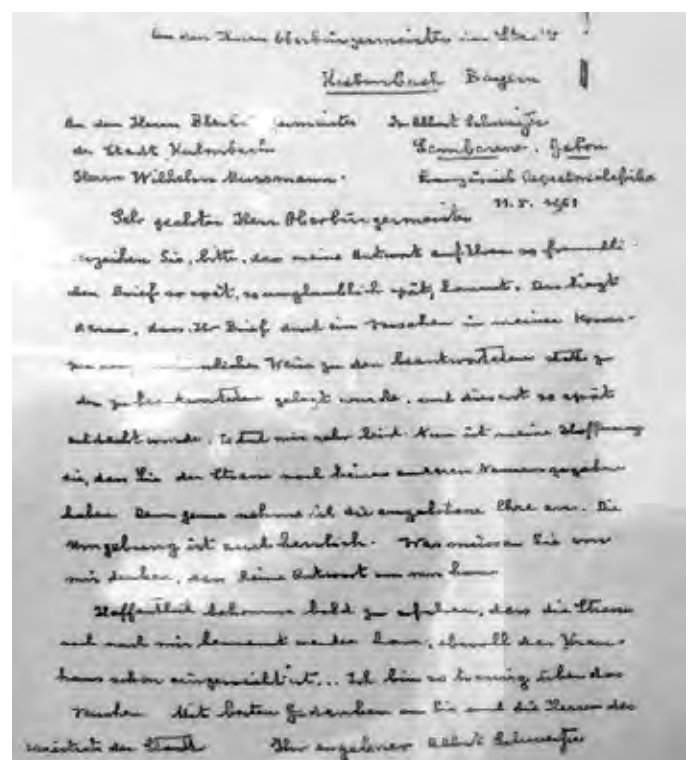 An den Herrn Oberbürgermeister der Stadt
Kulmbach Bayern
An den Herrn Oberbürgermeister Dr Albert Schweitzer
der Stadt Kulmbach Lambarene. Gabon
Herrn Wilhelm Mussmann. Französisch Aequatorialafrika
11.5.1961
Sehr geehrter Herr Oberbürgermeister
verzeihen Sie, bitte, dass meine Antwort auf Ihren so freundli
chen Brief so spät, so unglaublich spät, kommt. Das liegt
daran, dass Ihr Brief durch ein Versehen in meiner
Weise zu den beantworteten statt zu
den zu beantwortenden gelegt wurde, und dies erst so spät
entdeckt wurde. Es tut mir sehr leid. Nun ist meine Hoffnung
die, dass Sie der Strasse noch keinen anderen Namen gegeben
haben. Denn gerne nehme ich die angebotene Ehre an. Die
Umgebung ist auch herrlich. Was müssen Sie von
mir denken, dass keine Antwort von mir kam
Hoffentlich bekomme bald zu erfahren, dass die Strasse
noch nach mir benannt werden kann, obwohl das Kran-
haus schon eingeweiht ist... Ich bin so traurig über das
Versehen. Mit besten Gedanken an Sie und die Herren des
der Stadt Ihr ergebener Albert Schweitzer